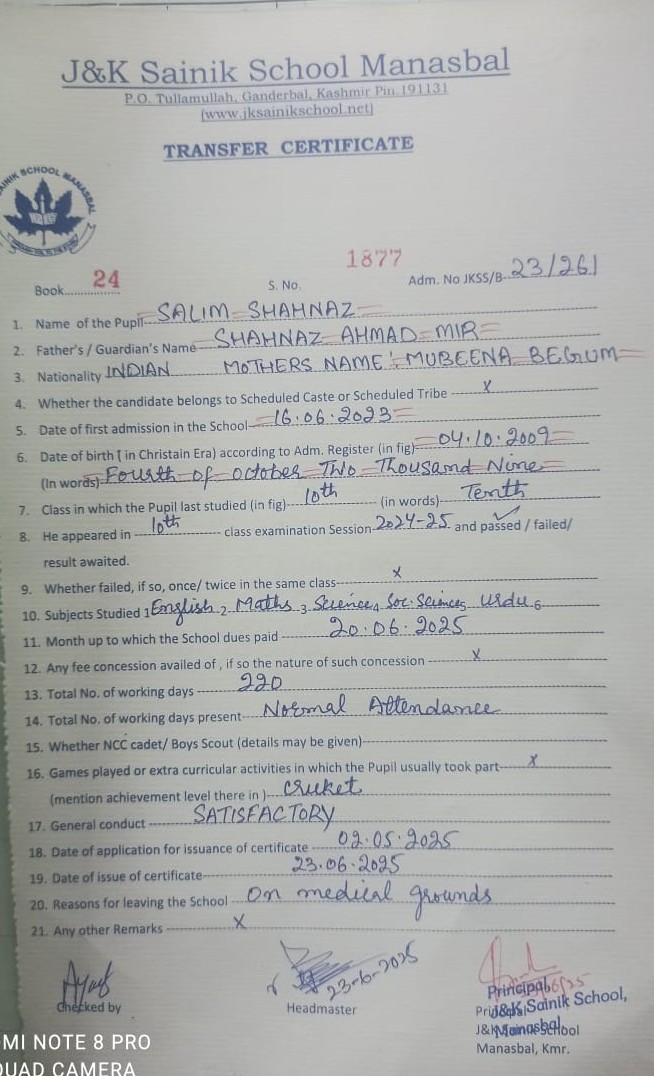 J&K Sainik School Manasbal
P.O. Tullamullah, Ganderbal, Kashmir Pin.191131
(www.jksainikschool.net)
TRANSFER CERTIFICATE
SAINIK SCHOOL MANASBAL
Book 24 S. No. 1877 Adm. No JKSS/B 23/261
1. Name of the Pupil SALIM SHAHNAZ
2. Father's / Guardian's Name SHAHNAZ AHMAD MIR
3. Nationality INDIAN MOTHERS NAME: MUBEENA BEGUM
4. Whether the candidate belongs to Scheduled Caste or Scheduled Tribe X
5. Date of first admission in the School 16.06.2023
6. Date of birth ( in Christain Era) according to Adm. Register (in fig) 04.10.2009
(In words) Fourth of October Two Thousand Nine
7. Class in which the Pupil last studied (in fig) 10th (in words) Tenth
8. He appeared in 10th class examination Session 2024-25 and passed / failed/
result awaited.
9. Whether failed, if so, once/ twice in the same class X
10. Subjects Studied 1 English 2 Maths 3 Science 4 Soc. Science 5 Urdu 6
11. Month up to which the School dues paid 20.06.2025
12. Any fee concession availed of , if so the nature of such concession X
13. Total No. of working days 220
14. Total No. of working days present Normal Attendance
15. Whether NCC cadet/ Boys Scout (details may be given)
16. Games played or extra curricular activities in which the Pupil usually took part X
(mention achievement level there in ) Cricket
17. General conduct SATISFACTORY
18. Date of application for issuance of certificate 02.05.2025
19. Date of issue of certificate 23.06.2025
20. Reasons for leaving the School On medical grounds
21. Any other Remarks X
23-6-2025
Checked by Headmaster
Principal
J&K Sainik School,
Manasbal
Manasbal, Kmr.
MI NOTE 8 PRO
QUAD CAMERA